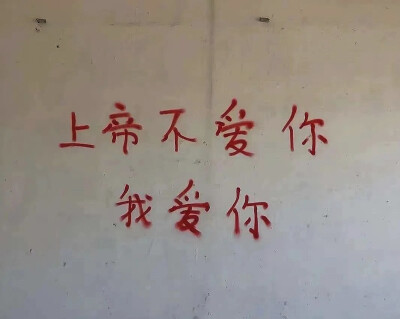 上帝不爱你
我爱你